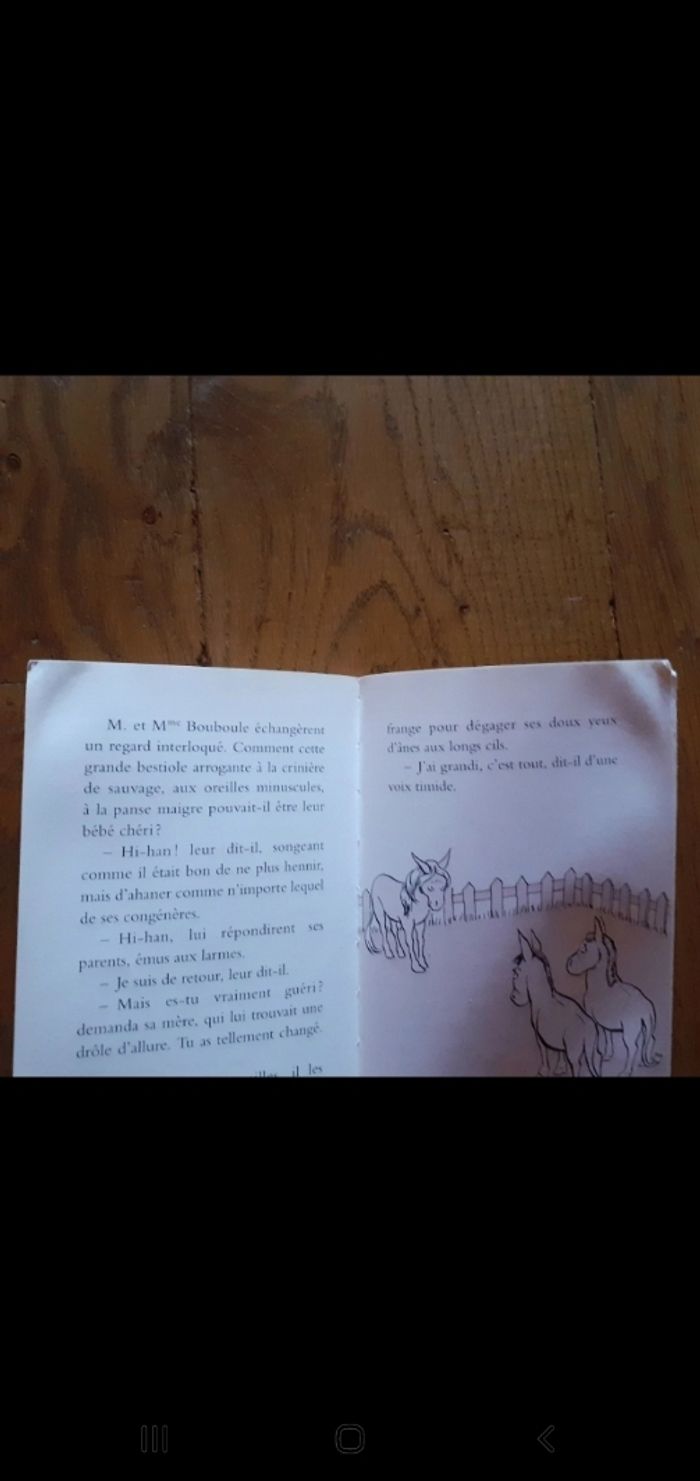 M. et Mme Bouboule échangèrent
un regard interloqué. Comment cette
grande bestiole arrogante à la crinière
de sauvage, aux oreilles minuscules,
à la panse maigre pouvait-il être leur
bébé chéri ?
– Hi-han ! leur dit-il, songeant
comme il était bon de ne plus hennir,
mais d'ahaner comme n'importe lequel
de ses congénères.
– Hi-han, lui répondirent ses
parents, émus aux larmes.
– Je suis de retour, leur dit-il.
– Mais es-tu vraiment guéri ?
demanda sa mère, qui lui trouvait une
drôle d'allure. Tu as tellement changé.
il les
frange pour dégager ses doux yeux
d'ânes aux longs cils.
– J'ai grandi, c'est tout, dit-il d'une
voix timide.